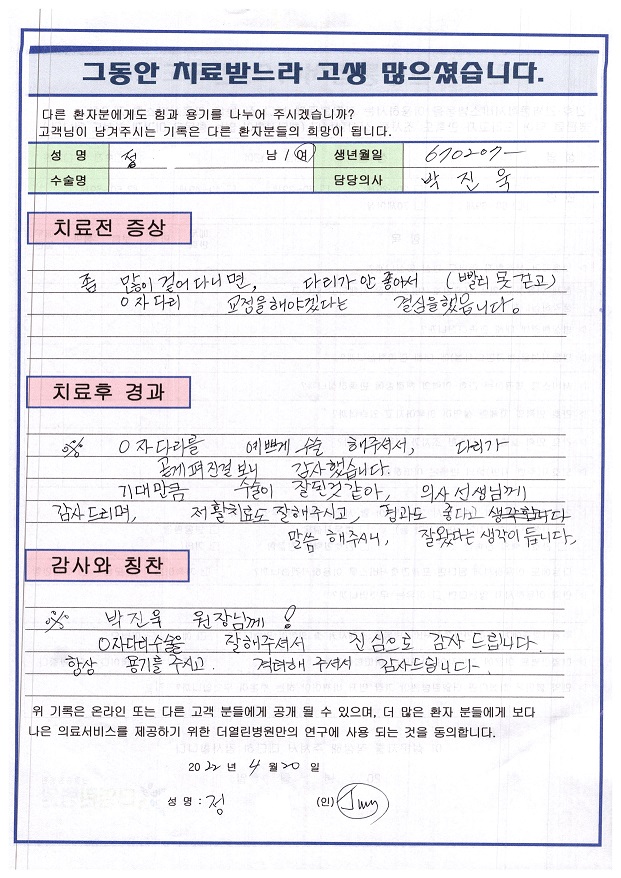 그동안 치료받느라 고생 많으셨습니다.
다른 환자분에게도 힘과 용기를 나누어 주시겠습니까?
고객님이 남겨주시는 기록은 다른 환자분들의 희망이 됩니다.
성 명 정 남 / 여 생년월일 670207-
수술명 담당의사 박 진 욱
치료전 증상
좀 많이 걸어다니면, 다리가 안 좋아서 (빨리 못 걷고)
O자다리 교정을해야겠다는 결심을했읍니다.
치료후 경과
O자다리를 예쁘게 수술 해주셔서, 다리가
곧게펴진걸보니 감사했습니다.
기대만큼 수술이 잘된것같아, 의사선생님께
감사드리며, 재활치료도 잘해주시고, 결과도 좋다고 생각합니다
말씀 해주시니, 잘왔다는생각이 듭니다,
감사와 칭찬
박진욱 원장님께!
O자다리수술을 잘해주셔서 진심으로 감사 드립니다.
항상 용기를 주시고. 격려해 주셔서 감사드립니다.
위 기록은 온라인 또는 다른 고객 분들에게 공개 될 수 있으며, 더 많은 환자 분들에게 보다
나은 의료서비스를 제공하기 위한 더열린병원만의 연구에 사용 되는 것을 동의합니다.
2022 년 4 월 20 일
성 명 : 정 (인)